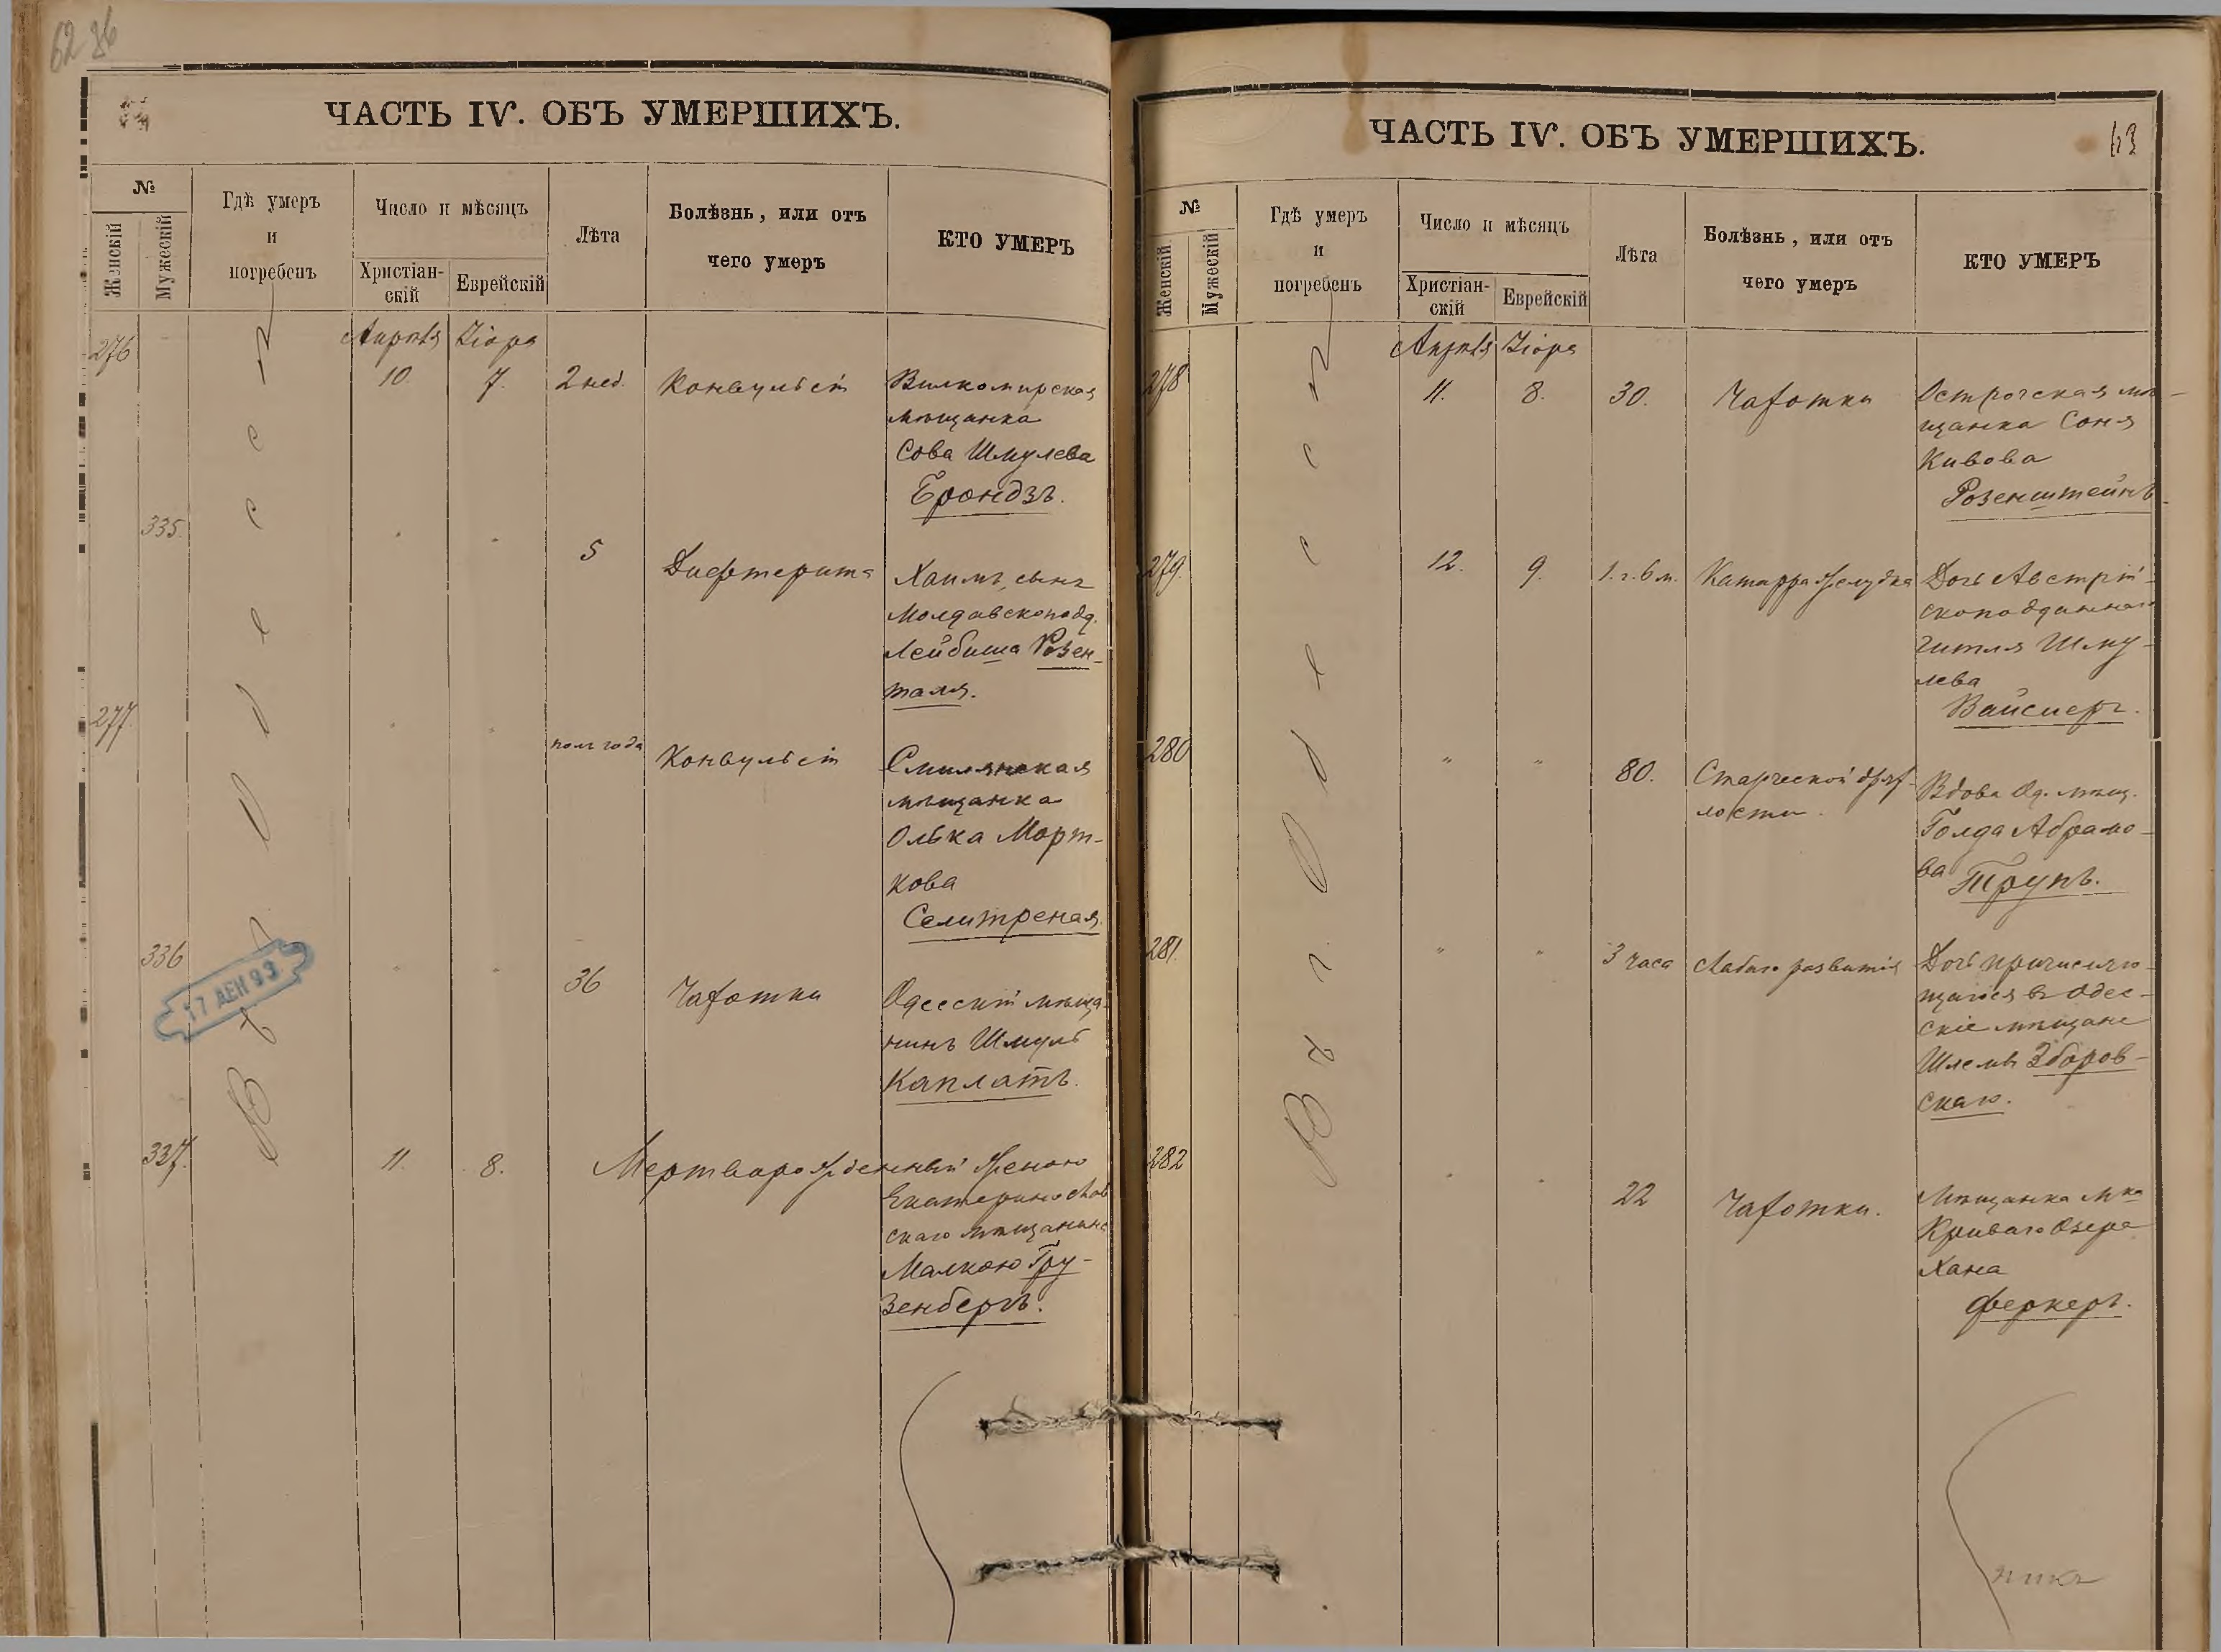 62 26
ЧАСТЬ IV. ОБЪ УМЕРШИХЪ.
№
Женскій
Мужескій
Гдѣ умеръ
и
погребенъ
Число и мѣсяцъ
Христіан-
скій
Еврейскій
Лѣта
Болѣзнь, или отъ
чего умеръ
КТО УМЕРЪ
Въ г. Одессѣ
Апрѣль Ⅰіора
276 10. 7. 2 нед. Конвульсій Вилкомирская
мѣщанка
Сова Шмулева
Брондзъ.
335. " " 5 Дифтерита Хаимъ, сынъ
Молдавскоподд.
Лейбиша Розен-
таля.
277. " " полъ года Конвульсій Смилянская
мѣщанка
Олька Морт-
кова
Селитреная
336 " " 36 Чахотки Одесскій мѣща-
нинъ Шмуль
Капланъ.
17 ДЕН 93
337. 11. 8. Мертворожденный женою
Екатеринослав
скаго мѣщанина
Малкою Гру-
зенбергъ.
ЧАСТЬ IV. ОБЪ УМЕРШИХЪ.
63
№
Женскій
Мужескій
Гдѣ умеръ
и
погребенъ
Число и мѣсяцъ
Христіан-
скій
Еврейскій
Лѣта
Болѣзнь, или отъ
чего умеръ
КТО УМЕРЪ
Въ г. Одессѣ
Апрѣль Ⅰіора
278 11. 8. 30. Чахотки Острогская мѣ-
щанка Соня
Кивова
Розенштейнъ.
279. 12. 9. 1. г. 6 м. Катарра желудка Дочь Австрій-
скоподданнаго
Гитля Шму-
лева
Вайснеръ.
280 " " 80. Старческой дрях-
лости. Вдова Од. мѣщ.
Голда Абрамо-
ва Трупъ.
281. " " 3 часа Слабаго развитія Дочь причисляю-
щагося въ Одес-
скіе мѣщане
Шлемы Зборов-
скаго.
282 " " 22 Чахотки. Мѣщанка м-ка
Криваго Озера
Хана
Феркеръ.